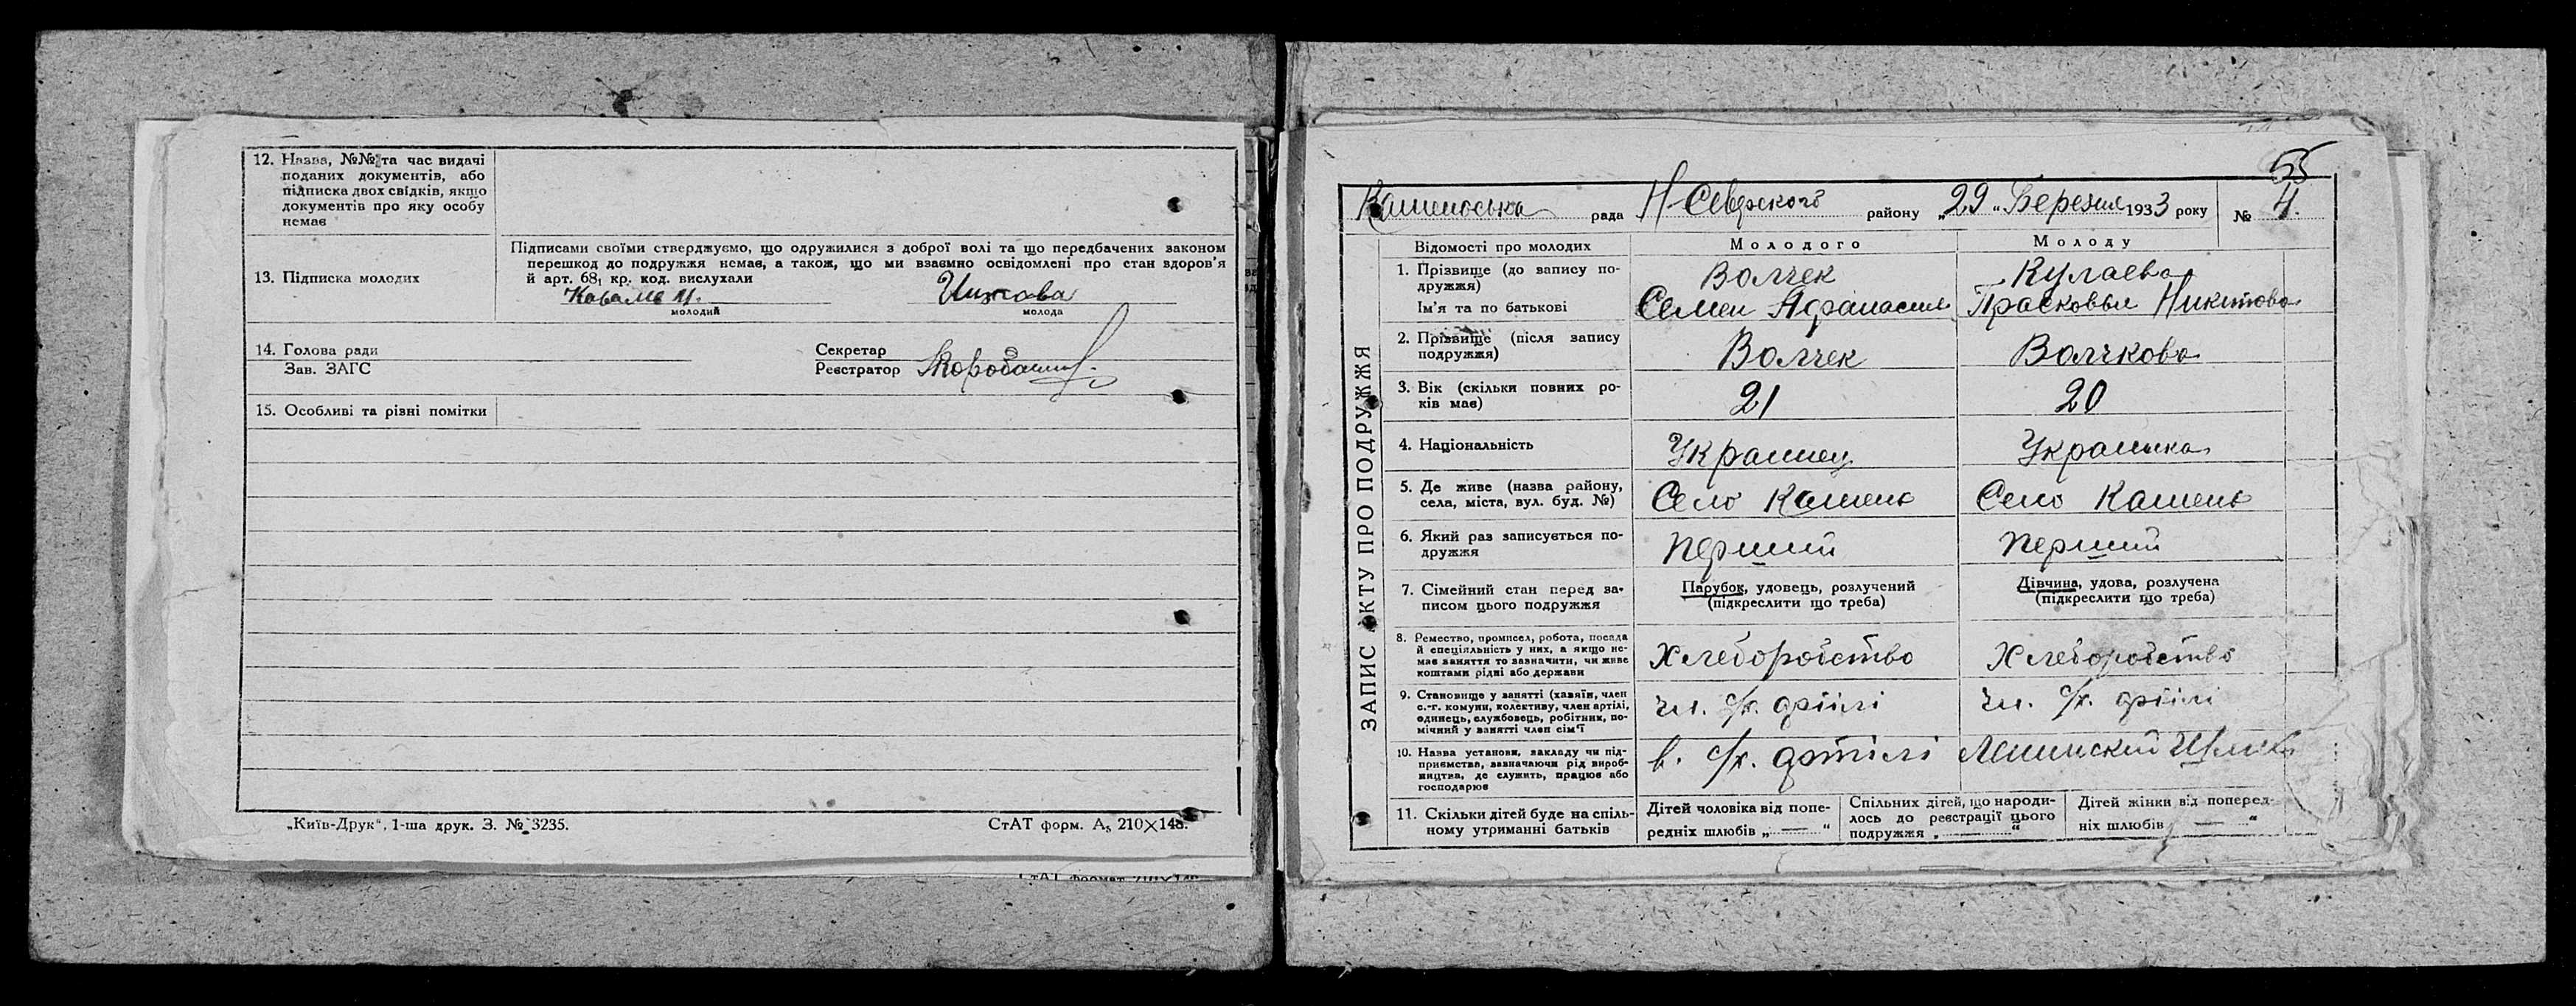 12. Назва, №№ та час видачі
поданих документів, або
підписка двох свідків, якщо
документів про яку особу
немає
13. Підписка молодих
Підписами своїми стверджуємо, що одружилися з доброї волі та що передбачених законом
перешкод до подружжя немає, а також, що ми взаємно освідомлені про стан здоров'я
й арт. 68₁ кр. код. вислухали
молодий
молода
14. Голова ради
Зав. ЗАГС
Секретар
Реєстратор
15. Особливі та різні помітки
„Київ-Друк“, 1-ша друк. З. № 3235.
СтАТ форм. А₅ 210×148.
55
Каменська рада Н-Северского району „29„ Березня 1933 року № 4.
ЗАПИС АКТУ ПРО ПОДРУЖЖЯ
Відомості про молодих
Молодого
Молоду
1. Прізвище (до запису по-
дружжя)
Ім'я та по батькові
Волчек
Семен Афанасия
Кулаева
Прасковья Никитова
2. Прізвище (після запису
подружжя)
Волчек
Волчкова
3. Вік (скільки повних ро-
ків має)
21
20
4. Національність
Украинец
Украинка
5. Де живе (назва району,
села, міста, вул. буд. №)
Село Камень
Село Камень
6. Який раз записується по-
дружжя
Перший
Перший
7. Сімейний стан перед за-
писом цього подружжя
Парубок, удовець, розлучений
(підкреслити що треба)
Дівчина, удова, розлучена
(підкреслити що треба)
8. Ремество, промисел, робота, посада
й спеціяльність у них, а якщо не-
має заняття то зазначити, чи живе
коштами рідні або держави
Хлеборобство
Хлеборобство
9. Становище у занятті (хазяїн, член
с.-г. комуни, колективу, член артілі,
одинець, службовець, робітник, по-
мічний у занятті член сім'ї
чл. с/г. артілі
чл. с/г. артілі
10. Назва установи, закладу чи під-
приємства, зазначаючи рід вироб-
ництва, де служить, працює або
господарює
в. с/г. артілі Ленинский Шлях
11. Скільки дітей буде на спіль-
ному утриманні батьків
Дітей чоловіка від попе-
редніх шлюбів „—“
Спільних дітей, що народи-
лось до реєстрації цього
подружжя „—“
Дітей жінки від поперед-
ніх шлюбів „—“